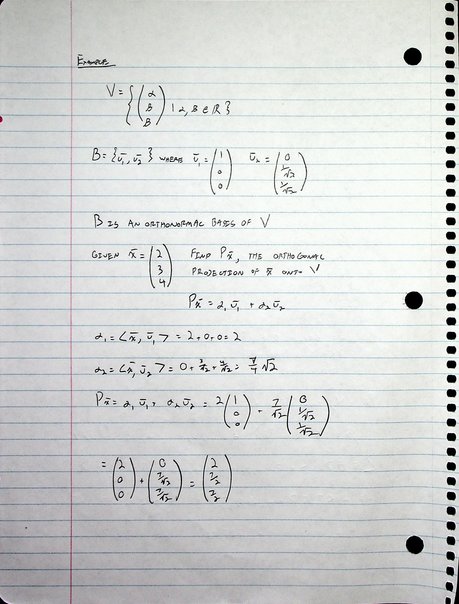 Example
V = { (α β β) | α, β ∈ ℝ }
B = {ū₁, ū₂} where ū₁ = (1 0 0) ū₂ = (0 1/√2 1/√2)
B is an orthonormal basis of V
Given x̄ = (2 3 4) find Px̄, the orthogonal
projection of x̄ onto V
Px̄ = α₁ū₁ + α₂ū₂
α₁ = <x̄, ū₁> = 2+0+0 = 2
α₂ = <x̄, ū₂> = 0 + 3/√2 + 4/√2 = √2
Px̄ = α₁ū₁ + α₂ū₂ = 2 (1 0 0) + 7/√2 (0 1/√2 1/√2)
= (2 0 0) + (0) = (2 7/2 7/2)